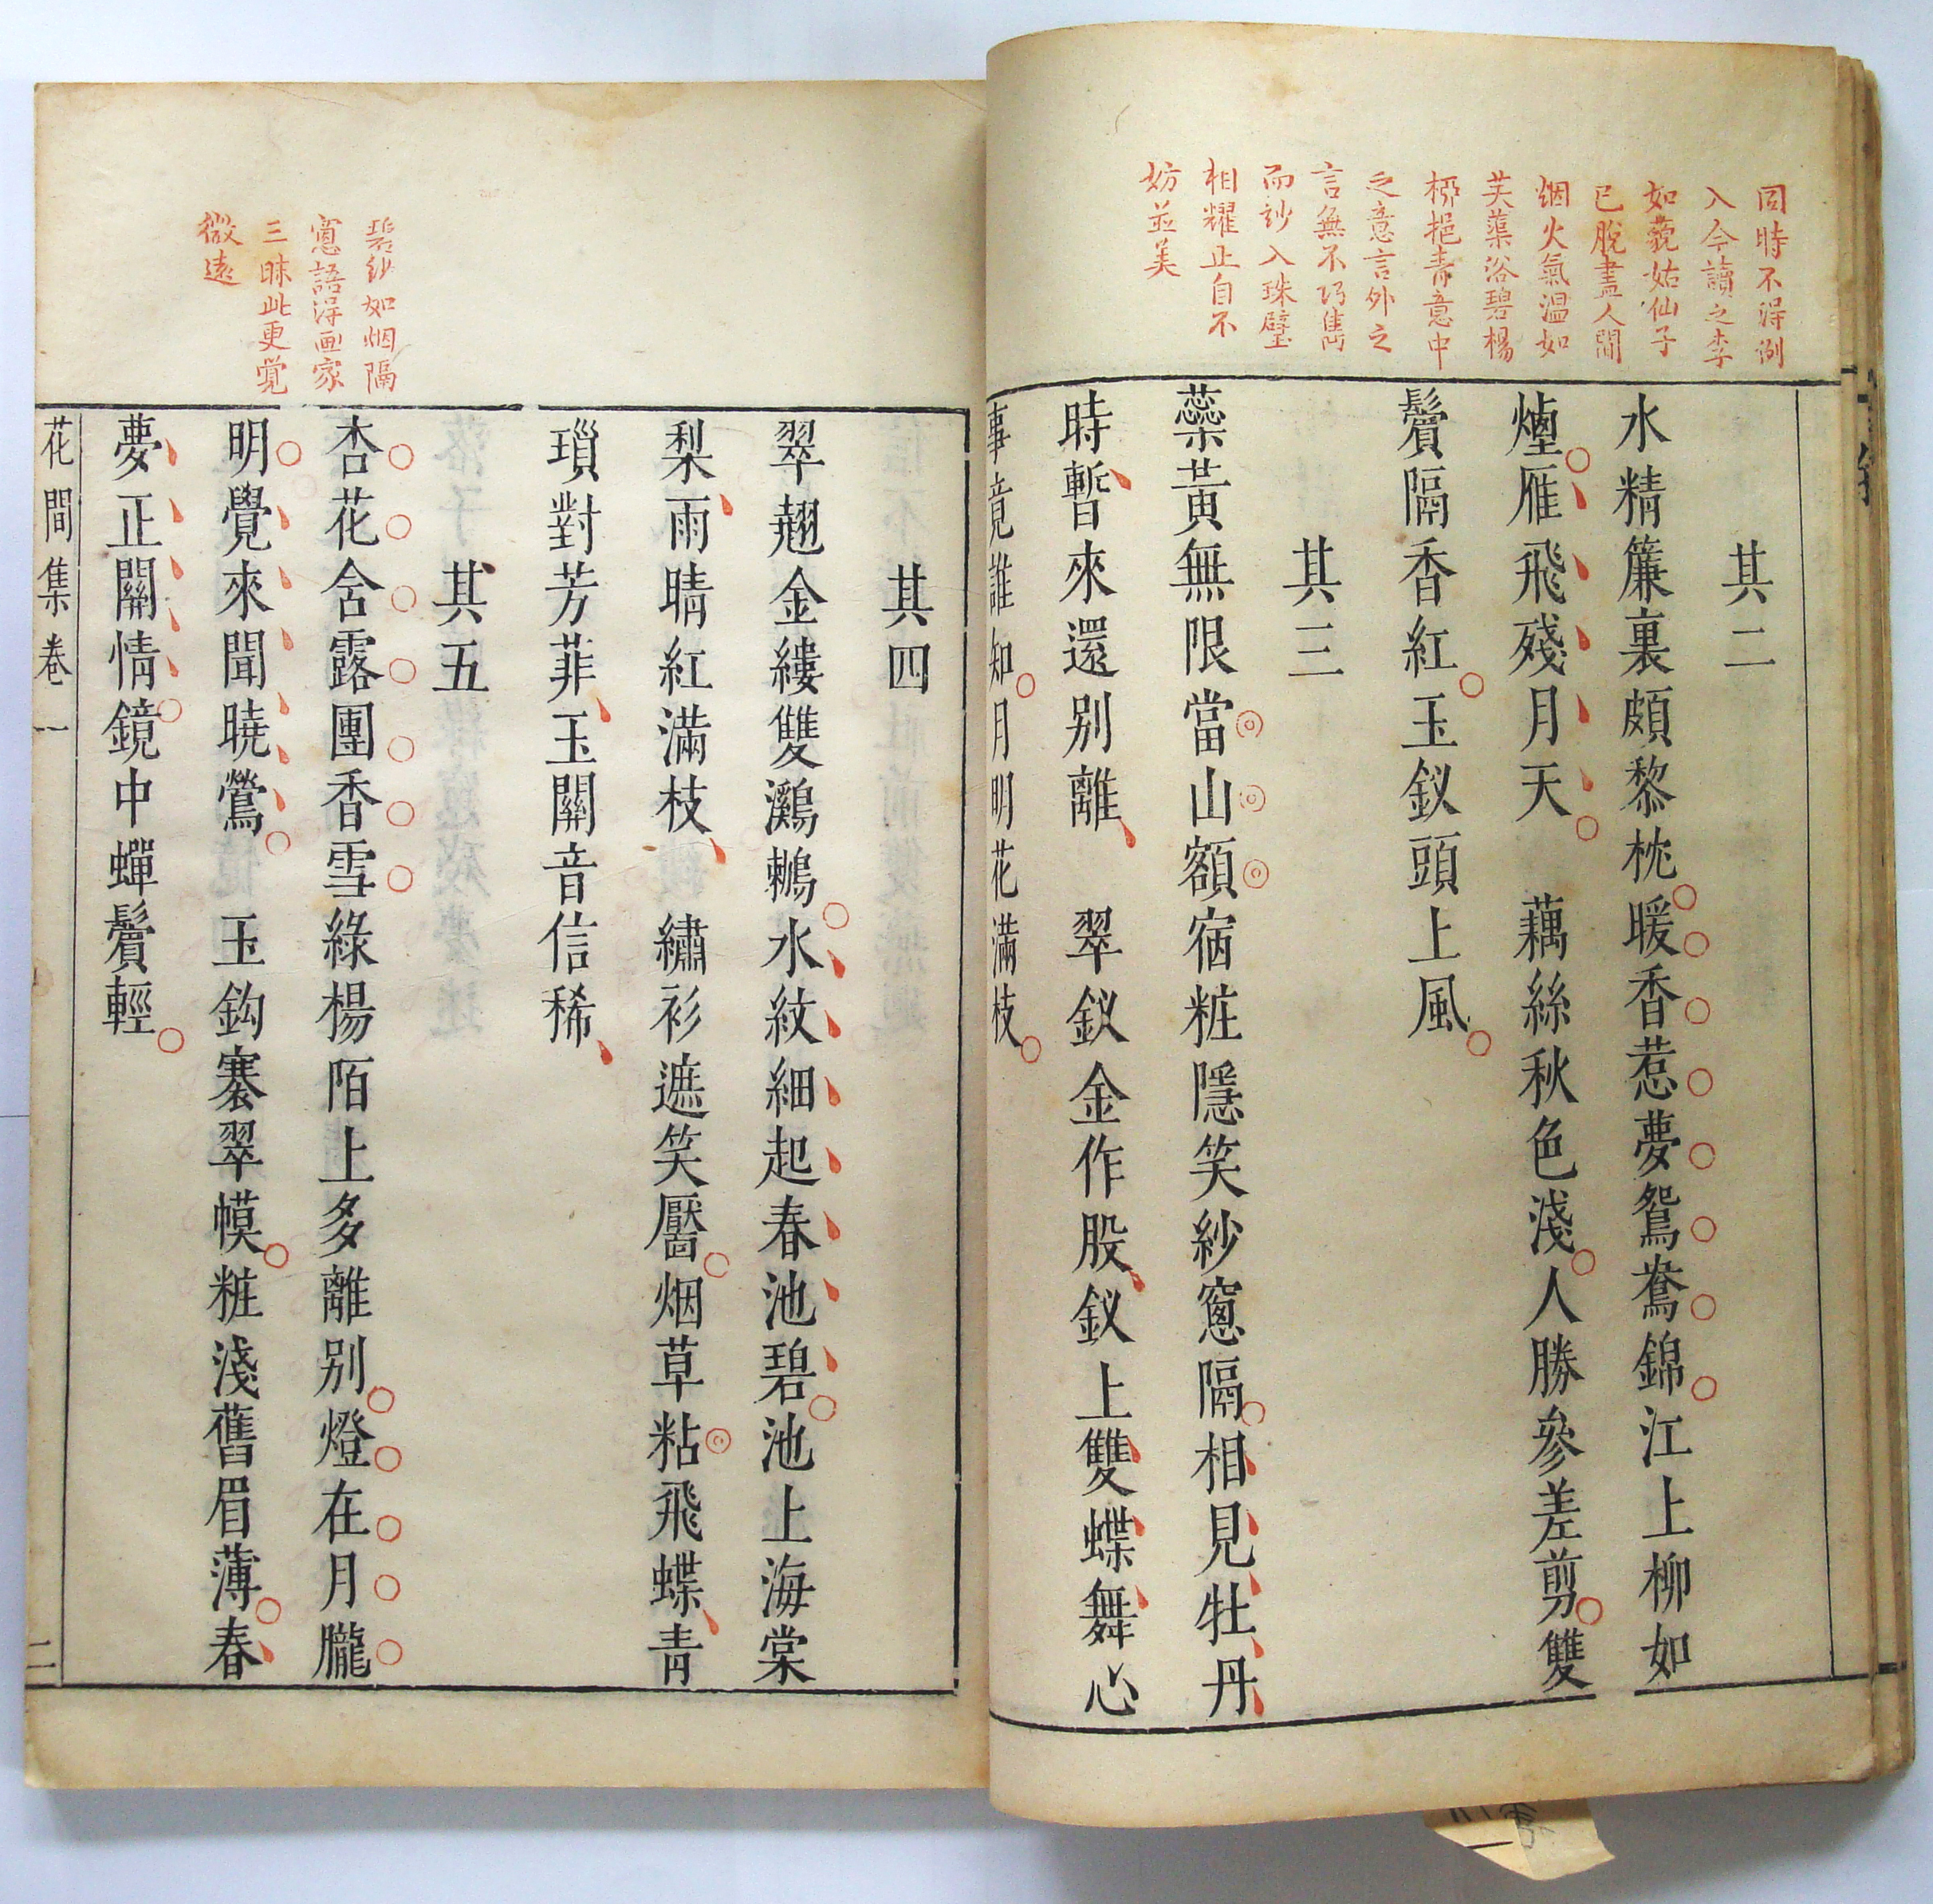 同時不淂例
入今讀之李
如藐姑仙子
已脫盡人間
烟火氣温如
芙蕖浴碧楊
栁挹青意中
之意言外之
言無不巧雋
而玅入珠璧
相耀正自不
妨並美
其二
水精簾裏頗黎枕暖香惹夢鴛鴦錦江上柳如
煙雁飛殘月天 藕絲秋色淺人勝參差剪雙
鬢隔香紅玉釵頭上風
其三
蘂黃無限當山額宿粧隱笑紗窻隔相見牡丹
時暫來還別離 翠釵金作股釵上雙蝶舞心
事竟誰知月明花滿枝
碧紗如烟隔
窻語淂画家
三昧此更覺
微遠
其四
翠翹金縷雙鸂鶒水紋細起春池碧池上海棠
梨雨晴紅滿枝 繡衫遮笑靨烟草粘飛蝶青
瑣對芳菲玉關音信稀
其五
杏花含露團香雪綠楊陌上多離別燈在月朧
明覺來聞曉鶯 玉鉤褰翠幙粧淺舊眉薄春
夢正關情鏡中蟬鬢輕
花間集卷一
二